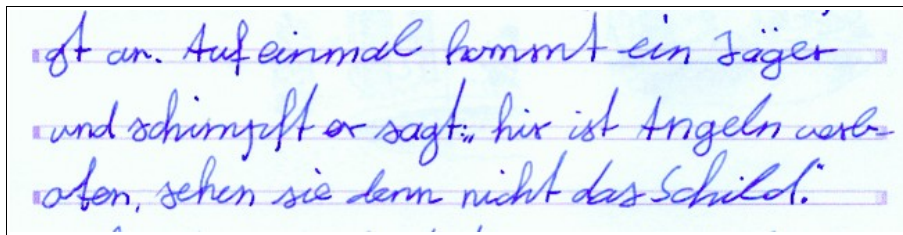 gt an. Auf einmal kommt ein Jäger
und schimpft er sagt: „hir ist Angeln verb-
oten, sehen sie denn nicht das Schild."